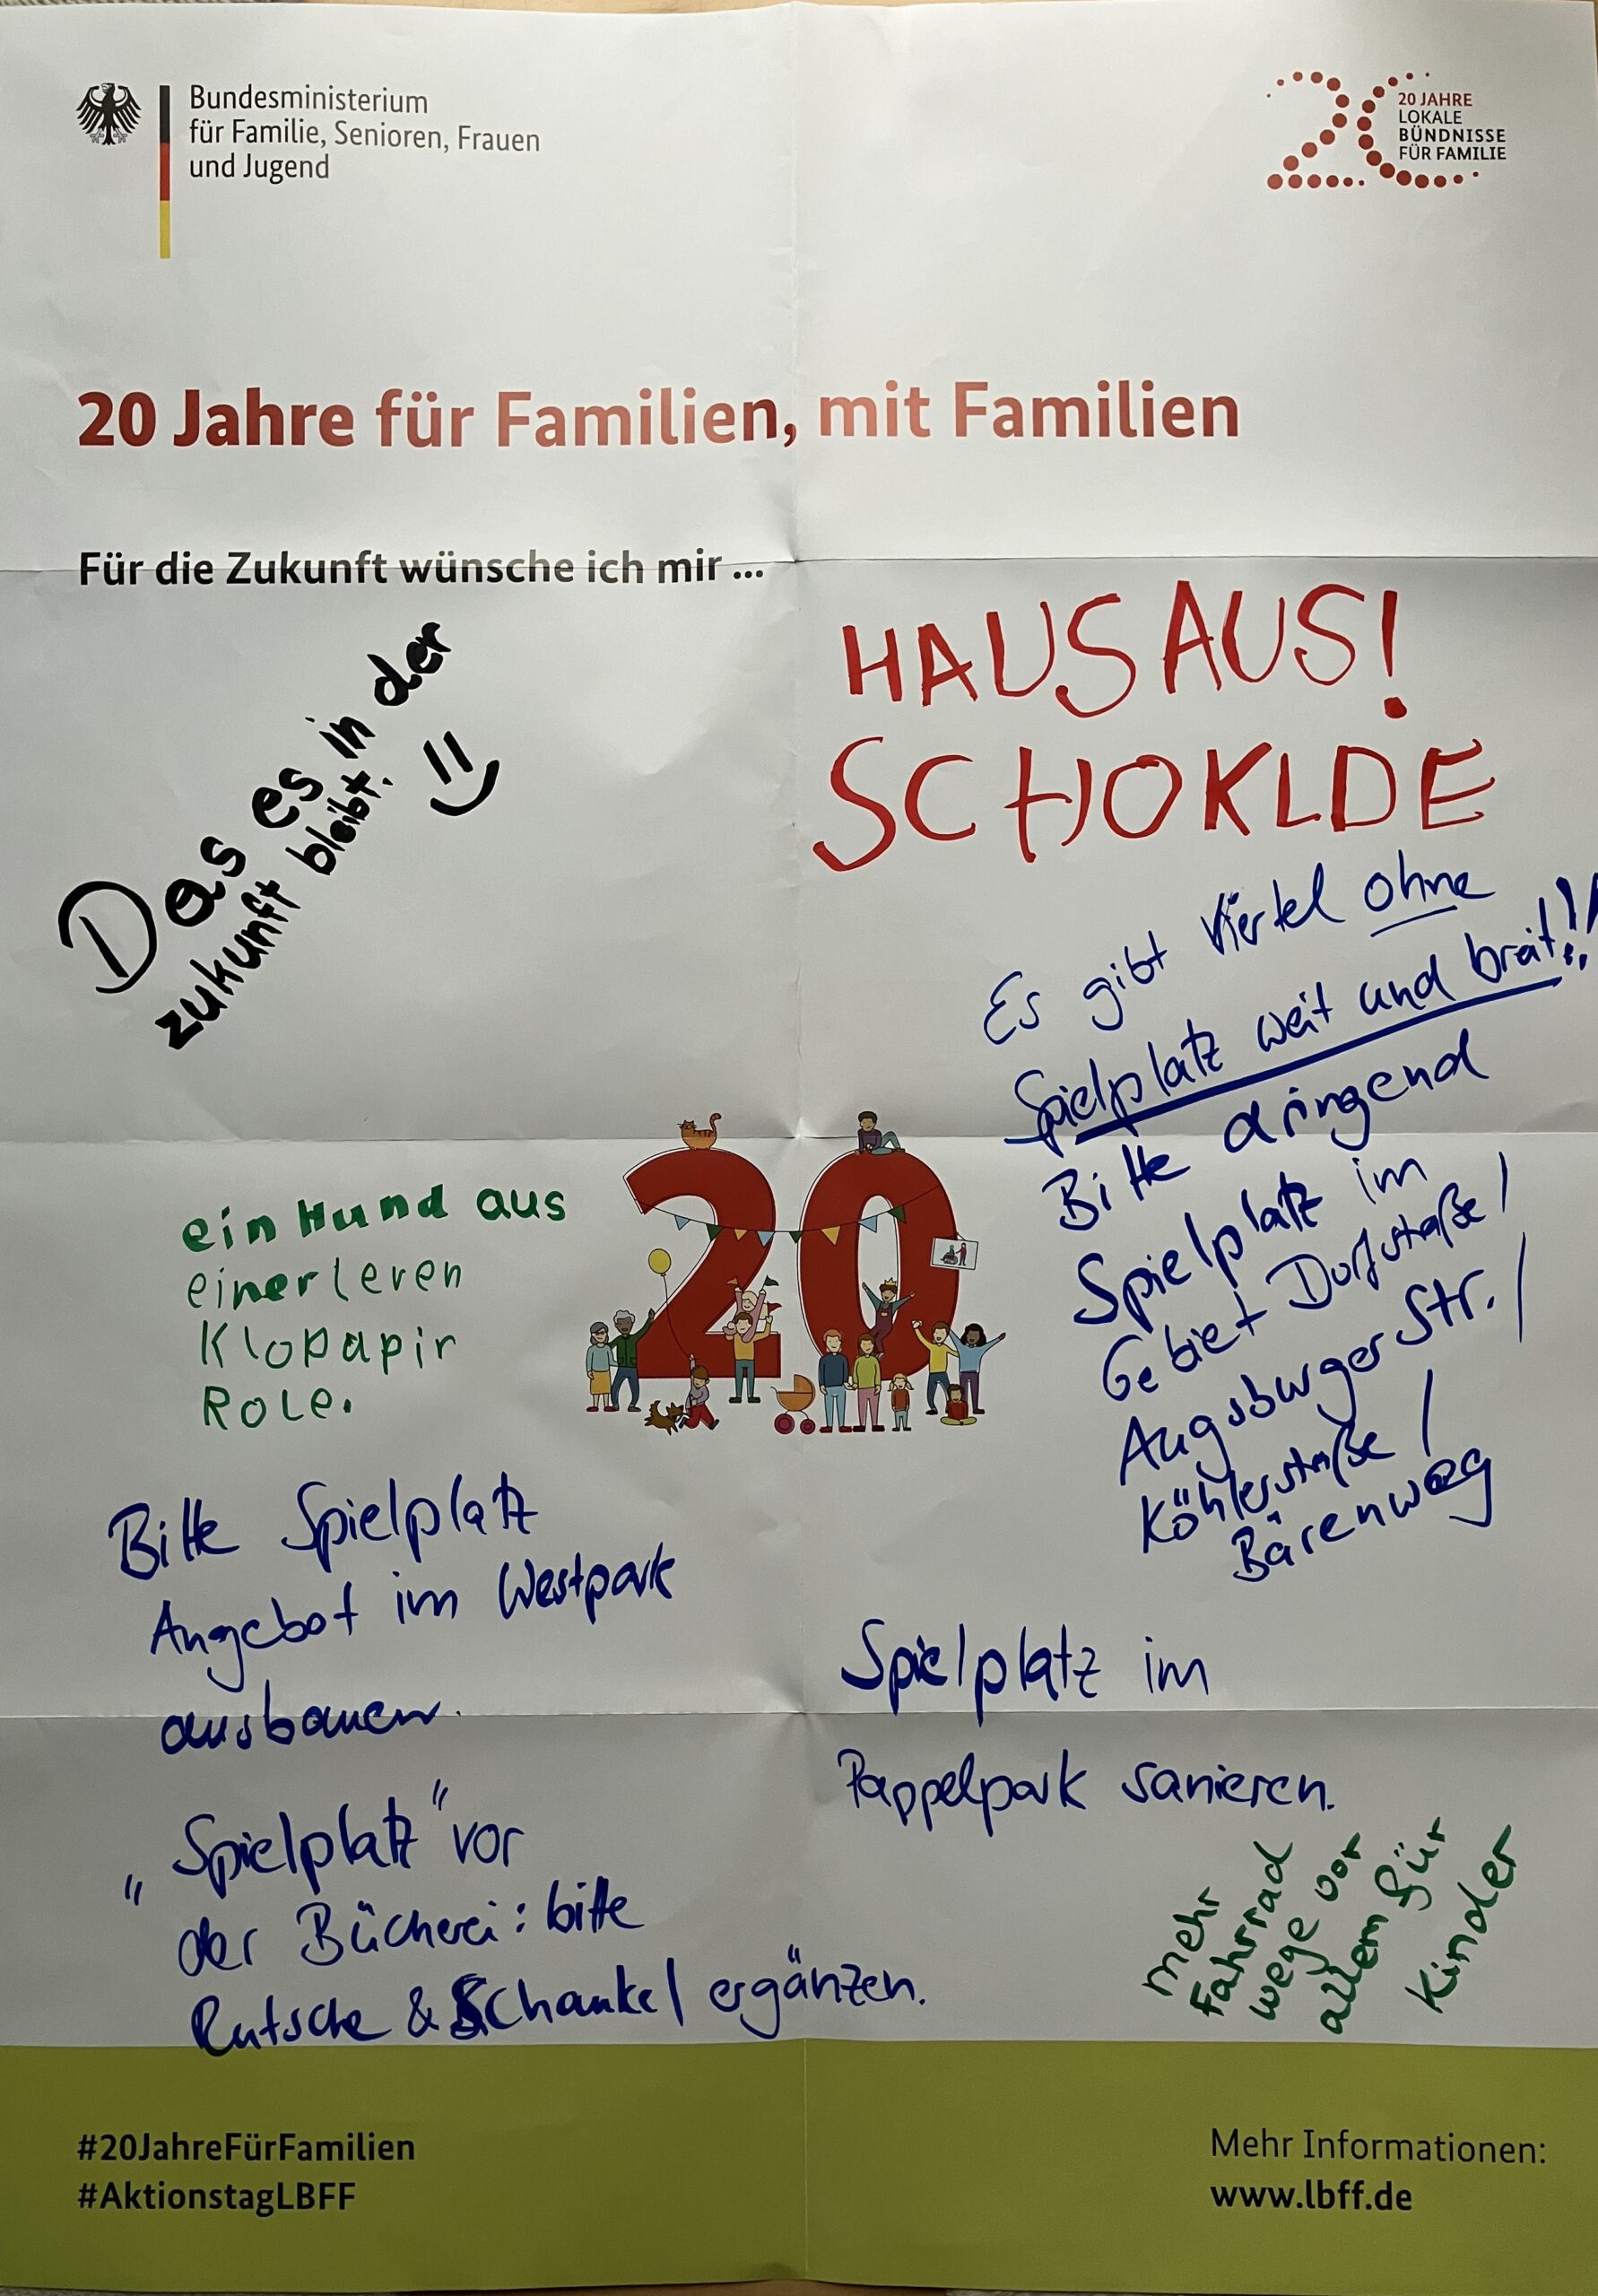 Bundesministerium
für Familie, Senioren, Frauen
und Jugend
20 JAHRE
LOKALE
BÜNDNISSE
FÜR FAMILIE
20 Jahre für Familien, mit Familien
Für die Zukunft wünsche ich mir ...
Das es in der
zukunft bleibt.
HAUS AUS!
SCHOKLDE
Es gibt Viertel ohne
Spielplatz weit und breit!!!
Bitte dringend
Spielplatz im
Gebiet Dorfstraße/
Augsburger Str./
Köhlerstraße/
Bärenweg
20
ein Hund aus
einer leren
Klopapir
Role.
Bitte Spielplatz
Angebot im Westpark
ausbauen.
Spielplatz im
Pappelpark sanieren.
"Spielplatz" vor
der Bücherei: bitte
Rutsche & Schaukel ergänzen.
mehr
Fahrrad
wege vor
allem für
Kinder
#20JahreFürFamilien
#AktionstagLBFF
Mehr Informationen:
www.lbff.de